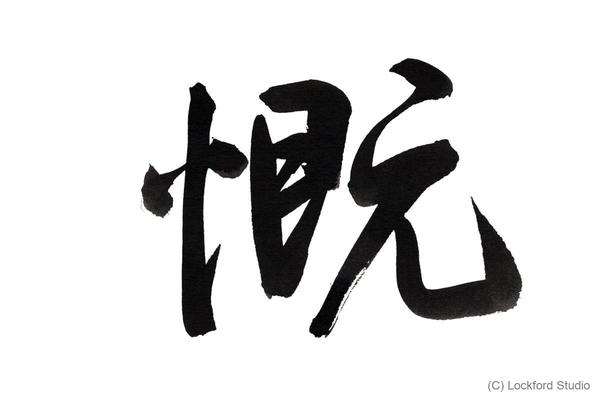 慨
(C) Lockford Studio